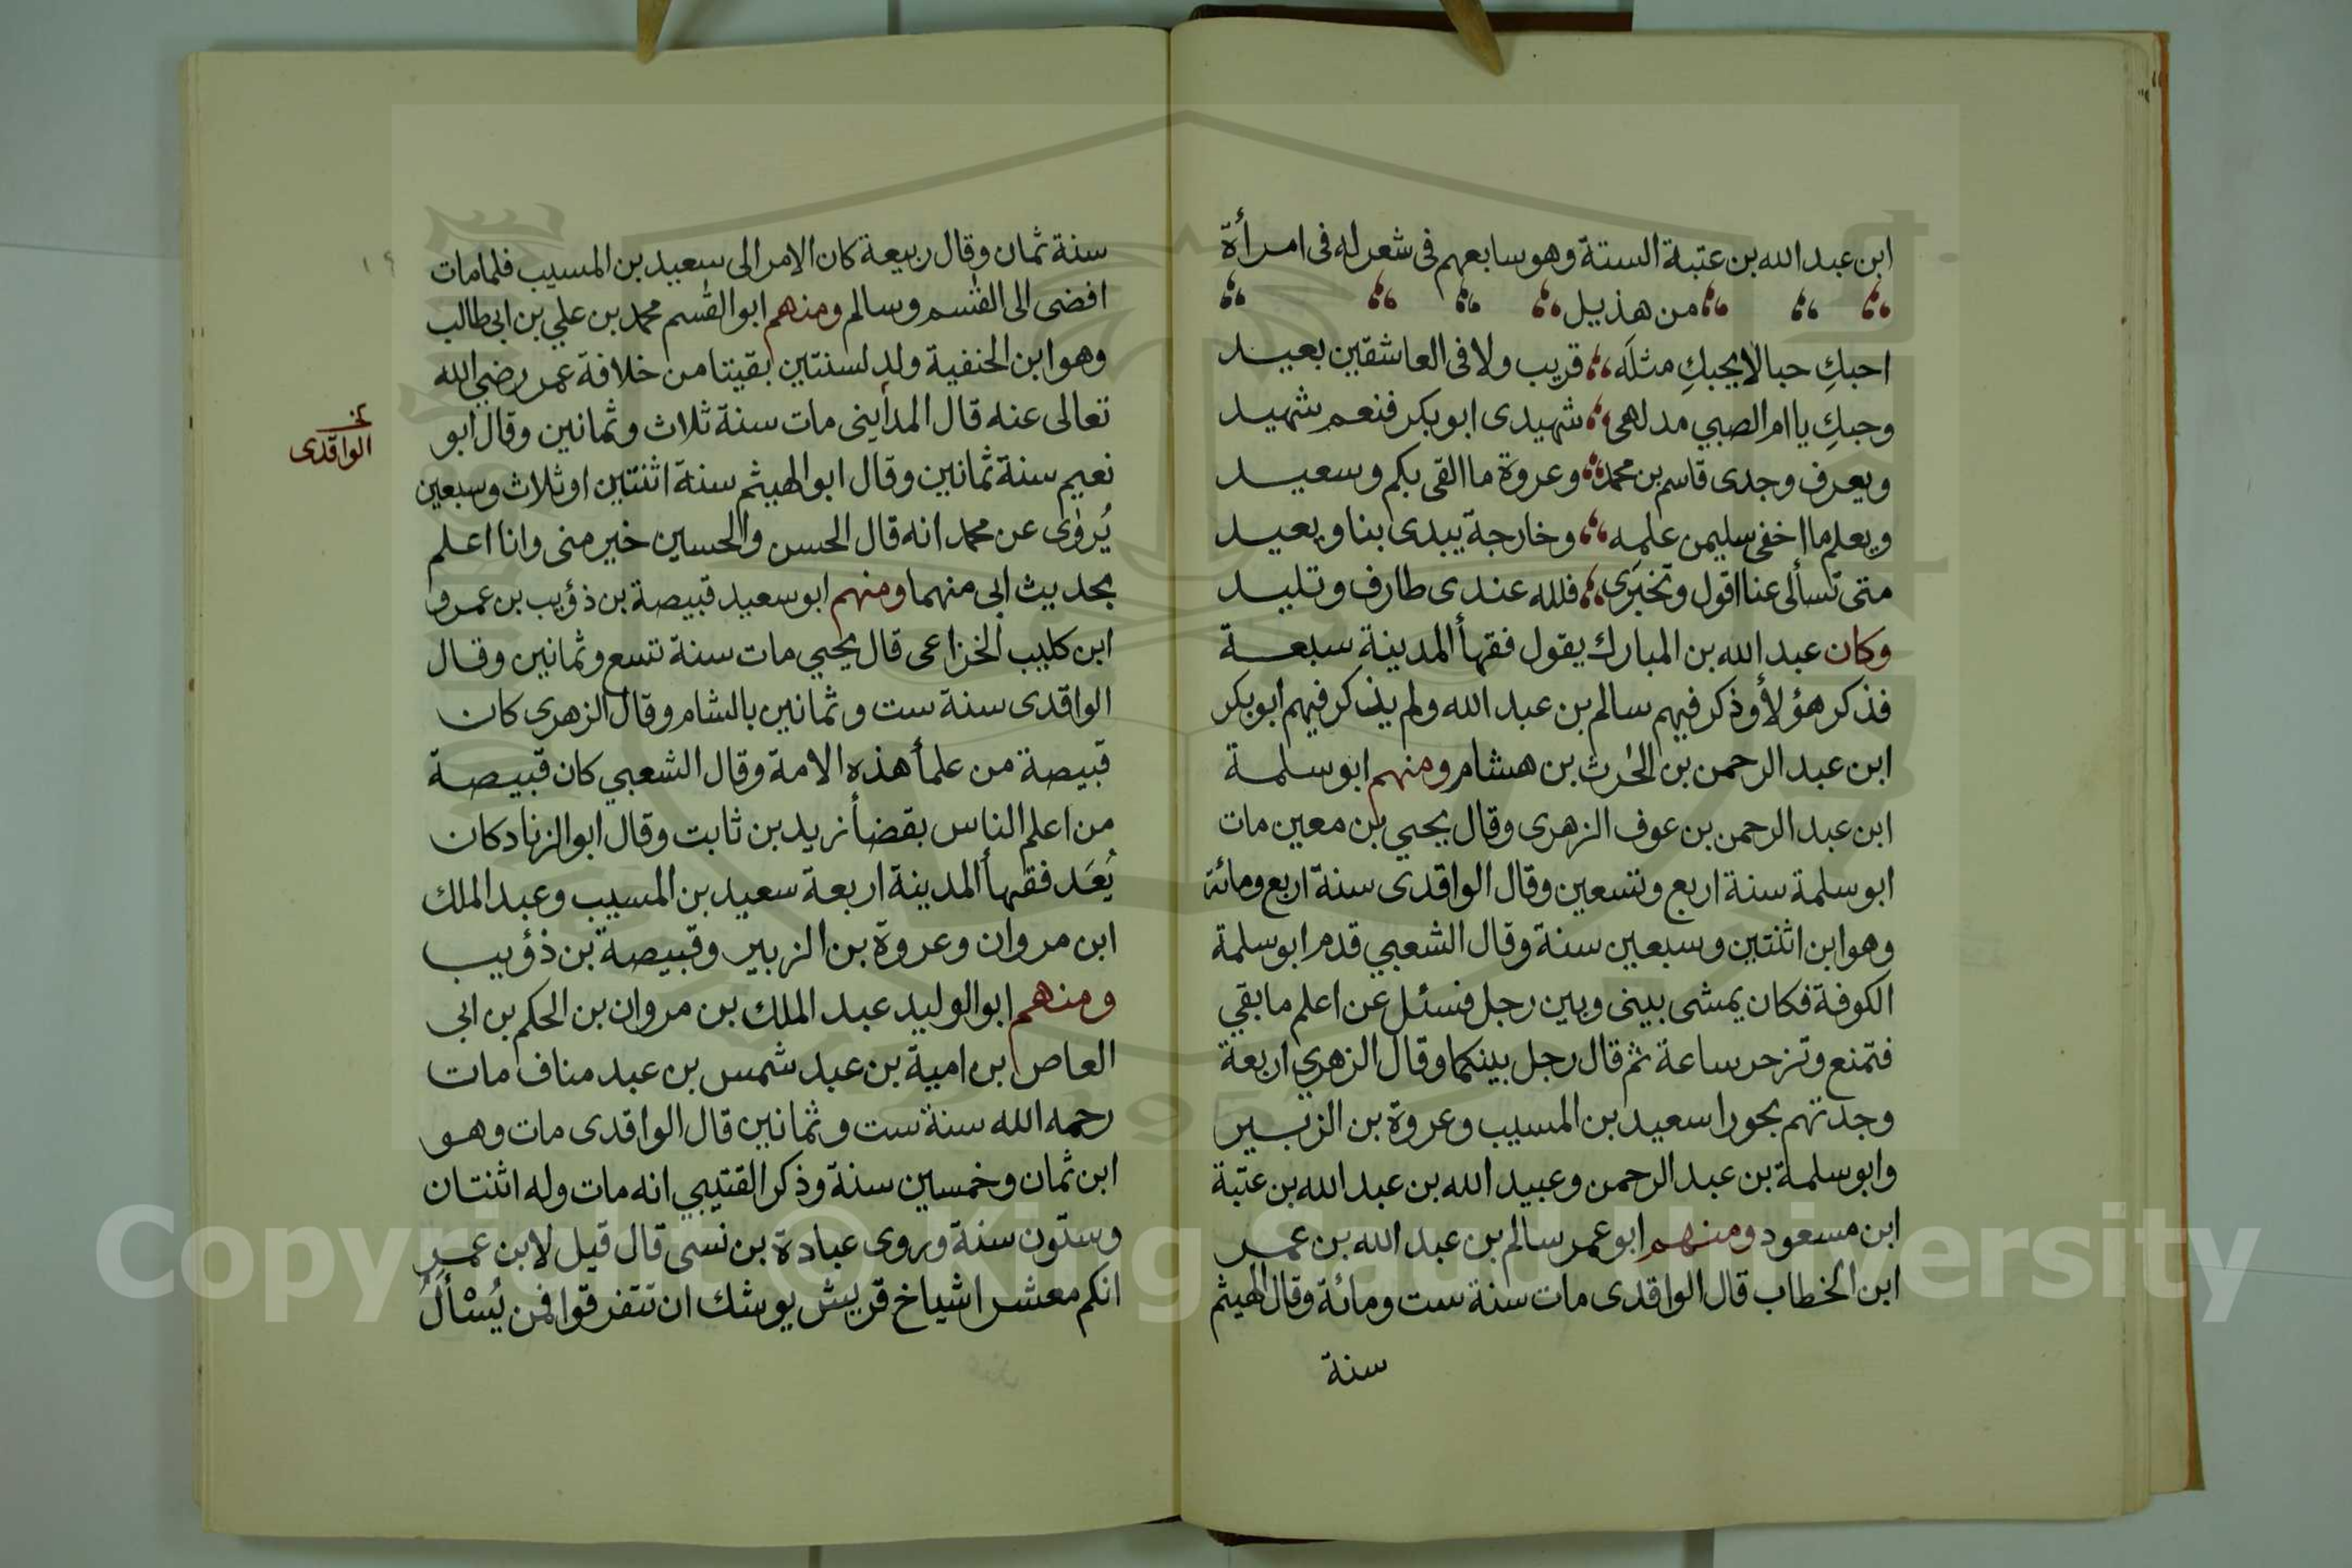 ابن عبد الله بن عتبة الستة وهو سابعهم فى شعر له فى امرأة
من هذيل
احبكِ حبا لا يحبكِ مثلَه قريب ولا فى العاشقين بعيد
وحبكِ يا ام الصبي مدلهى شهيدى ابو بكر فنعم شهيد
ويعرف وجدى قاسم بن محمد وعروة ما القى بكم وسعيد
ويعلم ما اخفى سليمن علمه وخارجة يبدى بنا ويعيد
متى تسألى عنا اقول وتخبَرى فلله عندى طارف وتليد
وكان عبد الله بن المبارك يقول فقهأ المدينة سبعة
فذكر هؤلأ وذكر فيهم سالم بن عبد الله ولم يذكر فيهم ابو بكر
ابن عبد الرحمن بن الحٰرث بن هشام ومنهم ابو سلمة
ابن عبد الرحمن بن عوف الزهرى وقال يحيي بن معين مات
ابو سلمة سنة اربع وتسعين وقال الواقدى سنة اربع ومائة
وهو ابن اثنتين وسبعين سنة وقال الشعبي قدم ابو سلمة
الكوفة فكان يمشى بينى وبين رجل فسئل عن اعلم ما بقي
فتمنع وتزحر ساعة ثم قال رجل بينكما وقال الزهري اربعة
وجدتهم بحورا سعيد بن المسيب وعروة بن الزبير
وابو سلمة بن عبد الرحمن وعبيد الله بن عبد الله بن عتبة
ابن مسعود ومنهم ابو عمر سالم بن عبد الله بن عمر
ابن الخطاب قال الواقدى مات سنة ست ومائة وقال الهيثم
سنة
سنة ثمان وقال ربيعة كان الامر الى سعيد بن المسيب فلما مات
افضى الى القٰسم وسالم ومنهم ابو القٰسم محمد بن علي بن ابى طالب
وهو ابن الحنفية ولد لسنتين بقيتا من خلافة عمر رضي الله
تعالى عنه قال المدأينى مات سنة ثلاث وثمانين وقال ابو
نعيم سنة ثمانين وقال ابو الهيثم سنة اثنتين او ثلاث وسبعين
يُروٰى عن محمد انه قال الحسن والحسين خير منى وانا اعلم
بحديث ابى منهما ومنهم ابو سعيد قبيصة بن ذؤيب بن عمرو
ابن كليب الخزاعى قال يحيي مات سنة تسع وثمانين وقال
الواقدى سنة ست وثمانين بالشام وقال الزهرى كان
قبيصة من علمأ هذه الامة وقال الشعبي كان قبيصة
من اعلم الناس بقضأ زيد بن ثابت وقال ابو الزناد كان
يُعَد فقهأ المدينة اربعة سعيد بن المسيب وعبد الملك
ابن مروان وعروة بن الزبير وقبيصة بن ذؤيب
ومنهم ابو الوليد عبد الملك بن مروان بن الحكم بن ابى
العاص ابن امية بن عبد شمس بن عبد مناف مات
رحمه الله سنة ست وثمانين قال الواقدى مات وهو
ابن ثمان وخمسين سنة وذكر القتيبي انه مات وله اثنتان
وستون سنة وروى عبادة بن نسى قال قيل لابن عمر
انكم معشر اشياخ قريش يوشك ان تتفرقوا فمن يُسْألُ
الواقدى
١٩
Copyright © King Saud University
1957